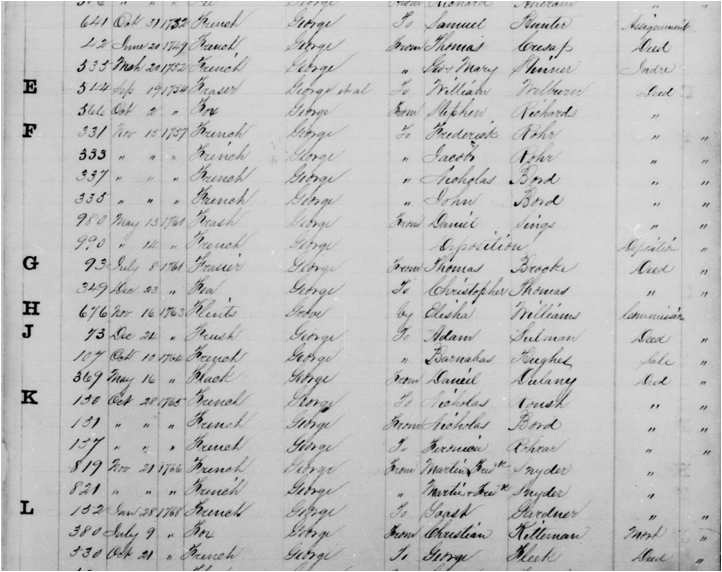 George From Richard
641 Oct 31 1752 French George To Samuel Hunter Assignment
42 June 20 1749 French George From Thomas Cresap Deed
535 Mch 20 1752 French George " Geo & Mary Skinner Indre
E 514 Sep 19 1754 Fraser George et al To William Wilburn Deed
566 Oct 2 " Fox George From Stephen Richards "
F 331 Nov 15 1757 French George To Frederick Rohr " "
333 " " " French George " Jacob Rohr " "
337 " " " French George " Nicholas Bord " "
335 " " " French George " John Bord " "
980 May 13 1760 Frash George From Daniel " "
990 " 14 " French George Deposition Deposition "
G 93 July 8 1761 Frasier George From Thomas Brooke Deed "
349 Dec 23 " George To Christopher Thomas " "
H 676 Nov 16 1763 Flints Grove by Elisha Williams Commission
J 73 Dec 21 " Frush George To Adam Deed "
107 Oct 10 1764 French George " Barnabas Hughes Sale "
369 May 16 " Flack George From Daniel Dulany Ded "
K 130 Oct 28 1765 French George To Nicholas " "
131 " " " French George From Nicholas Bord " "
137 " " " French George To " "
819 Nov 21 1766 French George From Martin & Fredk Snyder "
821 " " " French George " Martin & Fredk Snyder "
L 132 Jan 28 1768 French George To Gardner " "
380 July 9 " Fox George From Christian Mort "
530 Oct 21 " French George To George Fleck Deed "